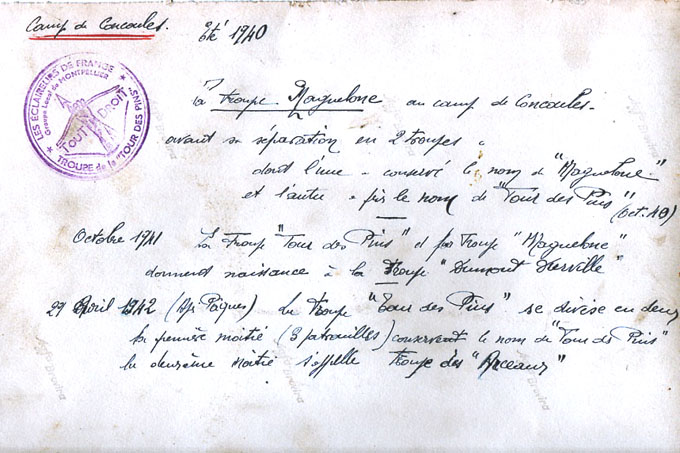 Camp de Concoules.
Eté 1940
LES ECLAIREURS DE FRANCE
Groupe Local de MONTPELLIER
TOUT DROIT
TROUPE de la "TOUR DES PINS"
la troupe Maguelone au camp de Concoules.
avant sa séparation en 2 troupes
dont l'une conservé le nom de "Maguelone"
et l'autre pris le nom de "Tour des Pins" (Oct. 40)
Octobre 1941 La Troupe "Tour des Pins" et la Troupe "Maguelone"
donnent naissance à la Troupe "Dumont Durville"
29 Avril 1942 (Ap. Pâques) la Troupe "Tour des Pins" se divise en deux
la première moitié (3 patrouilles) conservent le nom de "Tour des Pins"
la deuxième moitié s'appelle Troupe des "Arceaux"